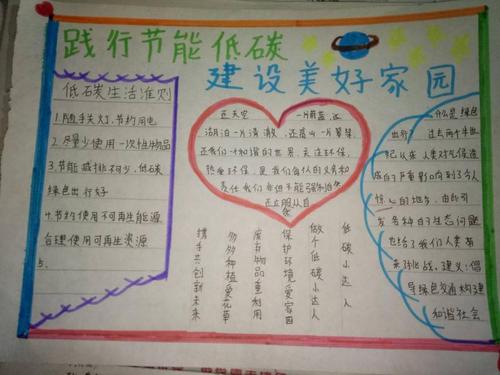 践行节能低碳
建设美好家园
低碳生活准则
1.随手关灯,节约用电
2.尽量少使用一次性物品
3.节能减排不少,低碳
绿色出行好
4.节约使用不可再生能源
合理使用可再生资源
5.
还天空 一片蔚蓝,还
湖泊一片清澈,还高山一片翠绿
还我们一个和谐的世界,关注环保,
热爱环保,是我们每个人的义务和
责任
低碳小达人
做个低碳小达人
保护环境爱家园
废弃物品重利用
多多种植爱花草
携手共创新未来
什么是绿色
出行? 过去两个半世
纪以来在人类对气候造
成的严重影响到了令人
惊心的地步,由此引
发各种自己生态问题
也给了我们人类带
来了挑战,建议:倡
导绿色交通构建
和谐社会